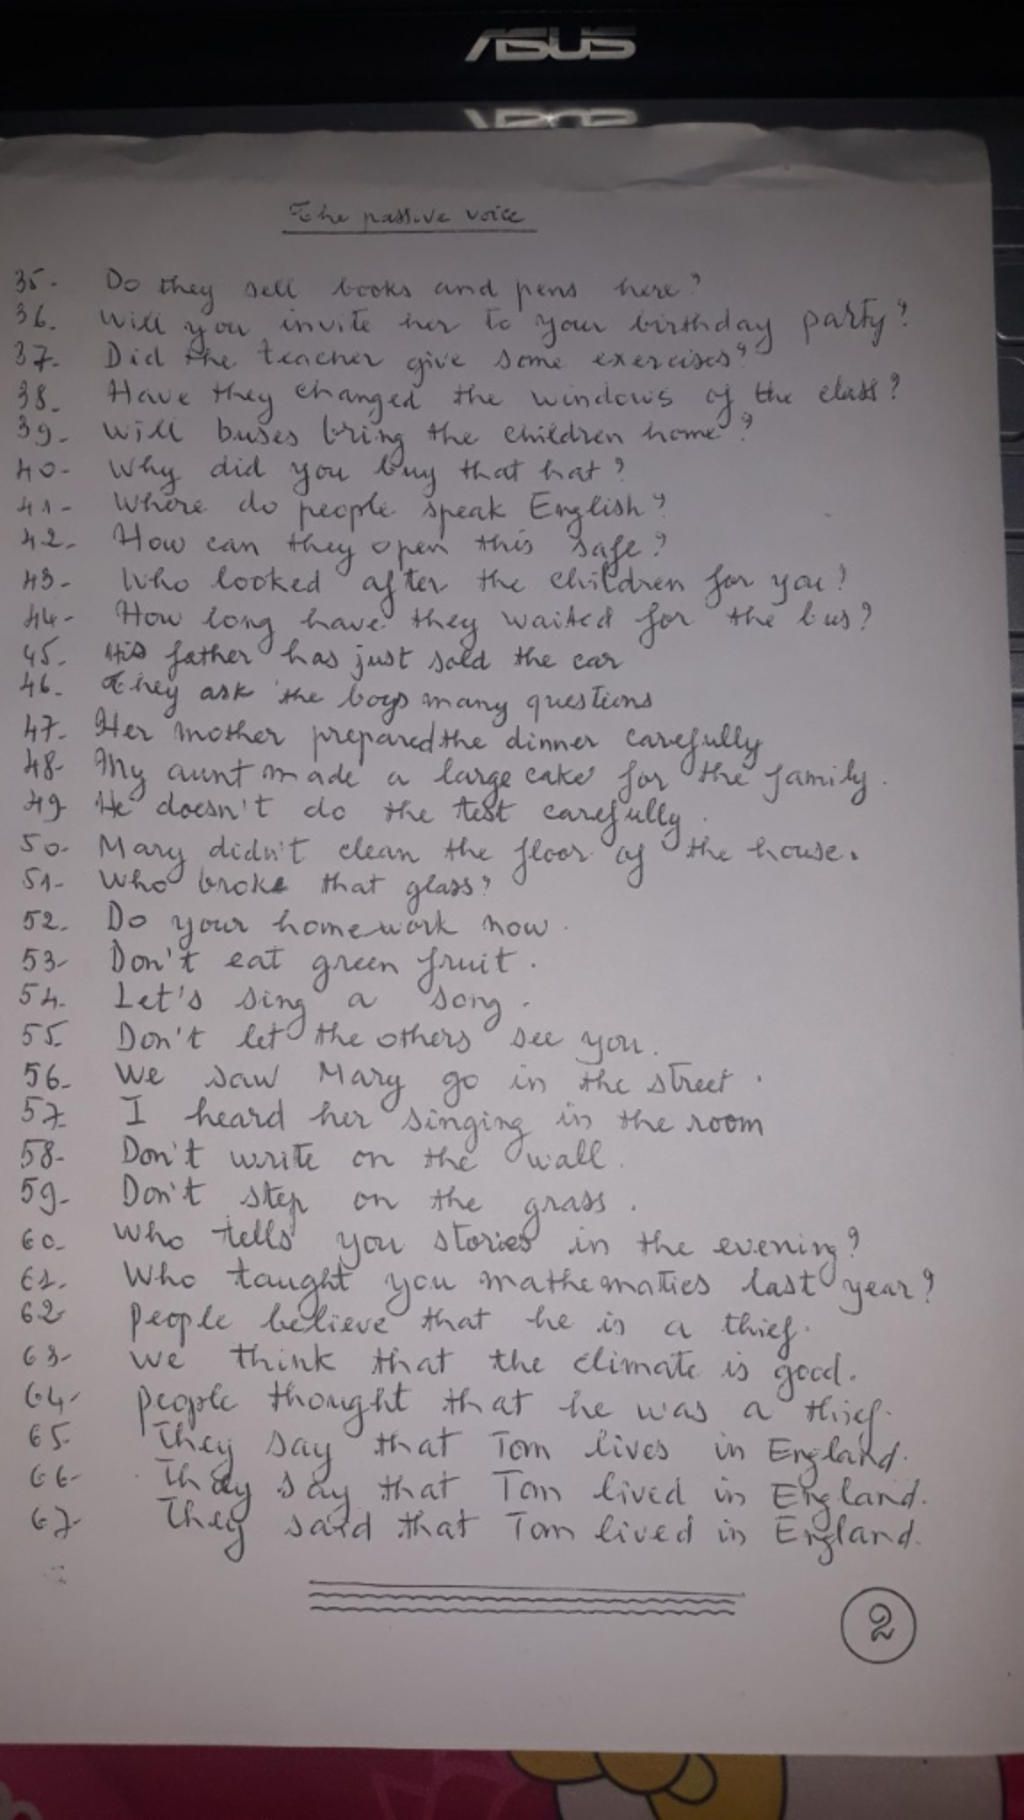 ASUS
The passive voice
35- Do they sell books and pens here?
36. Will you invite her to your birthday party?
37- Did the teacher give some exercises?
38- Have they changed the windows of the class?
39- Will buses bring the children home?
40- Why did you buy that hat?
41- Where do people speak English?
42- How can they open this safe?
43- Who looked after the children for you?
44- How long have they waited for the bus?
45- His father has just sold the car
46. They ask the boys many questions
47- Her mother prepared the dinner carefully
48- My aunt made a large cake for the family.
49 He doesn't do the test carefully.
50- Mary didn't clean the floor of the house.
51- Who broke that glass?
52. Do your homework now.
53- Don't eat green fruit.
54- Let's sing a song.
55- Don't let the others see you.
56- We saw Mary go in the street.
57- I heard her singing in the room
58- Don't write on the wall.
59- Don't step on the grass.
60- Who tells you stories in the evening?
61- Who taught you mathematics last year?
62- People believe that he is a thief.
63- We think that the climate is good.
64- people thought that he was a thief.
65- They say that Tom lives in England.
66- They say that Tom lived in England.
67- They said that Tom lived in England.
2